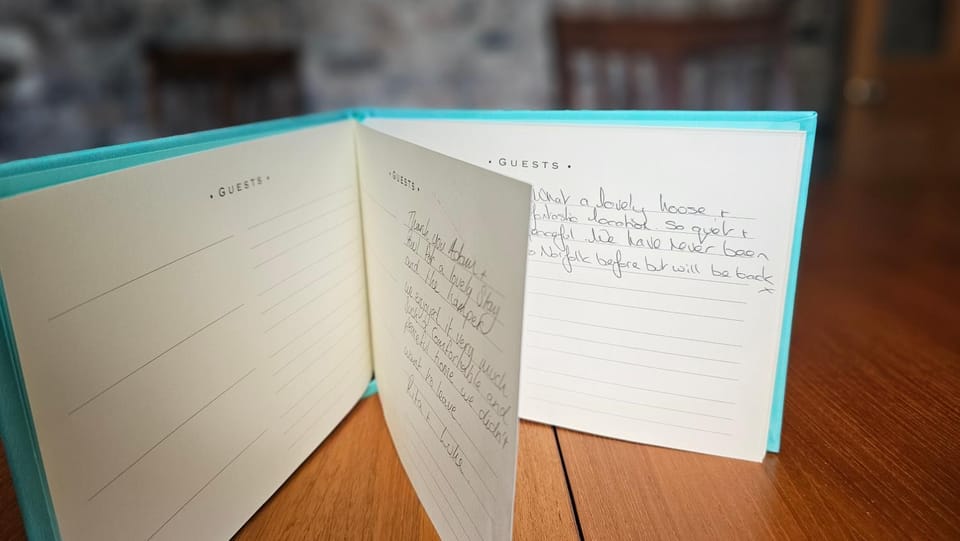 • GUESTS •
• GUESTS •
Thank you Adam +
for a lovely stay
and the hamper
we enjoyed it very much
comfortable and
peaceful home we didn't
want to leave
Rita + Leslie
• GUESTS •
What a lovely hoose +
fantastic location so quiet +
peaceful. We have never been
to Norfolk before but will be back
x